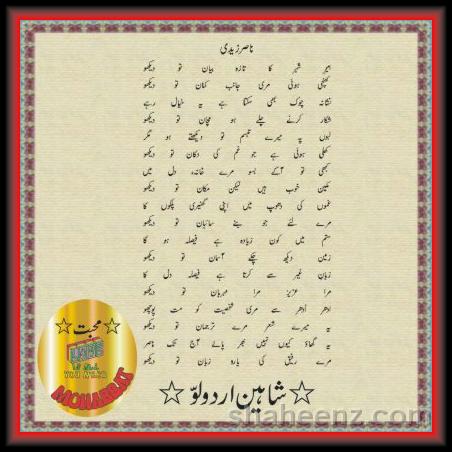 ناصر زیدی
امیر شہر کا تازہ بیان تو دیکھو
کھنچی ہوئی مری جانب کمان تو دیکھو
نشانہ چوک بھی سکتا ہے یہ خیال رہے
شکار کرنے چلے ہو مچان تو دیکھو
لبوں پہ میرے تبسم تو دیکھتے ہو مگر
کھلی ہوئی ہے جو غم کی دکان تو دیکھو
کبھی تو آکے بسو مرے خانہء دل میں
مکین خوب ہیں لیکن مکان تو دیکھو
غموں کی دھوپ میں اپنی گھنیری پلکوں کا
مرے لئے جو بنے سائبان تو دیکھو
ستم میں کون زیادہ ہے فیصلہ ہو گا
زمین دیکھ چکے آسمان تو دیکھو
زبان غیر سے کرتا ہے فیصلہ دل کا
مرا عزیز مرا مہربان تو دیکھو
ادھر ادھر سے مری شخصیت کو مت پوچھو
یہ میرے شعر مرے ترجمان تو دیکھو
یہ گھاؤ کیوں نہیں بھر پائے آج تک ناصر
مرے رفیق کی بارہ زبان تو دیکھو
☆ محبت ☆
MOHABBAT
☆ شاہین اردو لوّ ☆
shaheenz.com